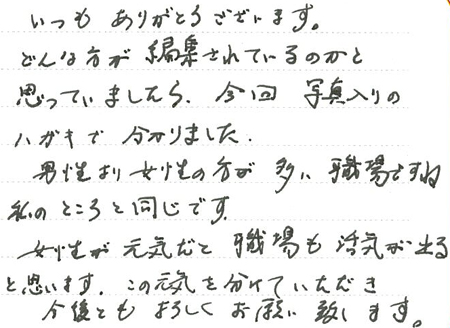 いつも ありがとうございます。
どんな方が 編集されているのかと
思っていましたら、今回 写真入りの
ハガキで 分かりました.
男性より女性の方が 多い 職場ですね
私のところと同じです。
女性が 元気だと 職場も 活気が出る
と思います. この元気を分けていただき
今後とも よろしく お願い 致します。